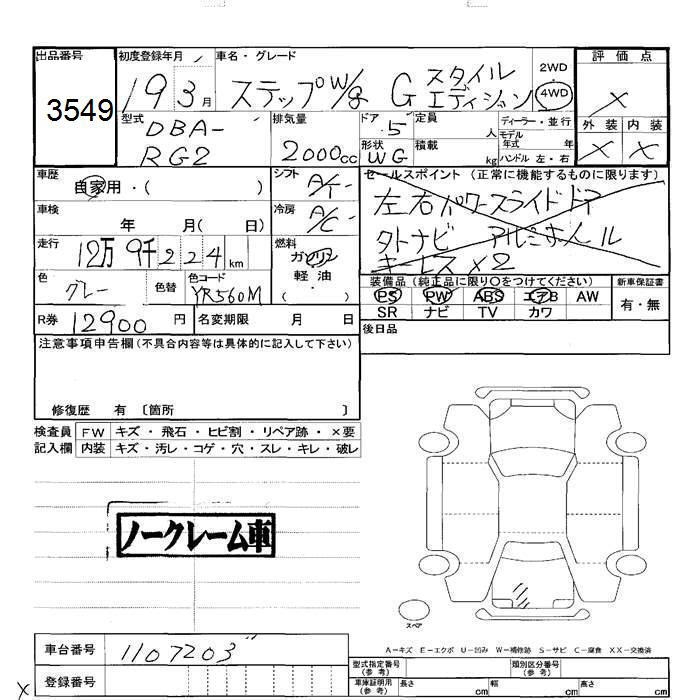 出品番号 初度登録年月 車名・グレード 2WD 評価点
3549 19 3月 ステップW/g G スタイル エディション 4WD ×
型式 排気量 ドア 定員 ディーラー・並行 外装 内装
DBA-RG2 2000cc 5 人 モデル年式 年 × ×
形状 積載
WG kg ハンドル 左・右
車歴 シフト セールスポイント (正常に機能するものに限ります)
自家用・( ) A/T- 左右パワースライドドア
車検 冷房
年 月( 日) A/C- 外ナビ アルミホイル
走行 燃料
12万 9千 2 2 4 km ガソリン キーレス×2
色 色替 色コード 軽油・ 装備品 (純正品に限り○をつけてください) 新車保証書
グレー YR560M ・( ) PS PW ABS エアB AW 有・無
SR ナビ TV カワ
R券 12900 円 名変期限 月 日 後日品
注意事項申告欄(不具合内容等は具体的に記入して下さい)
修復歴 有 〔箇所 〕
検査員 FW キズ・飛石・ヒビ割・リペア跡・×要
記入欄 内装 キズ・汚レ・コゲ・穴・スレ・キレ・破レ
ノークレーム車
スペア
A-キズ E-エクボ U-凹み W-補修跡 S-サビ C-腐食 XX-交換済
車台番号 1107203 型式指定番号(参考) 類別区分番号(参考)
登録番号 車庫証明用(参考) 長さ cm 幅 cm 高さ cm
×